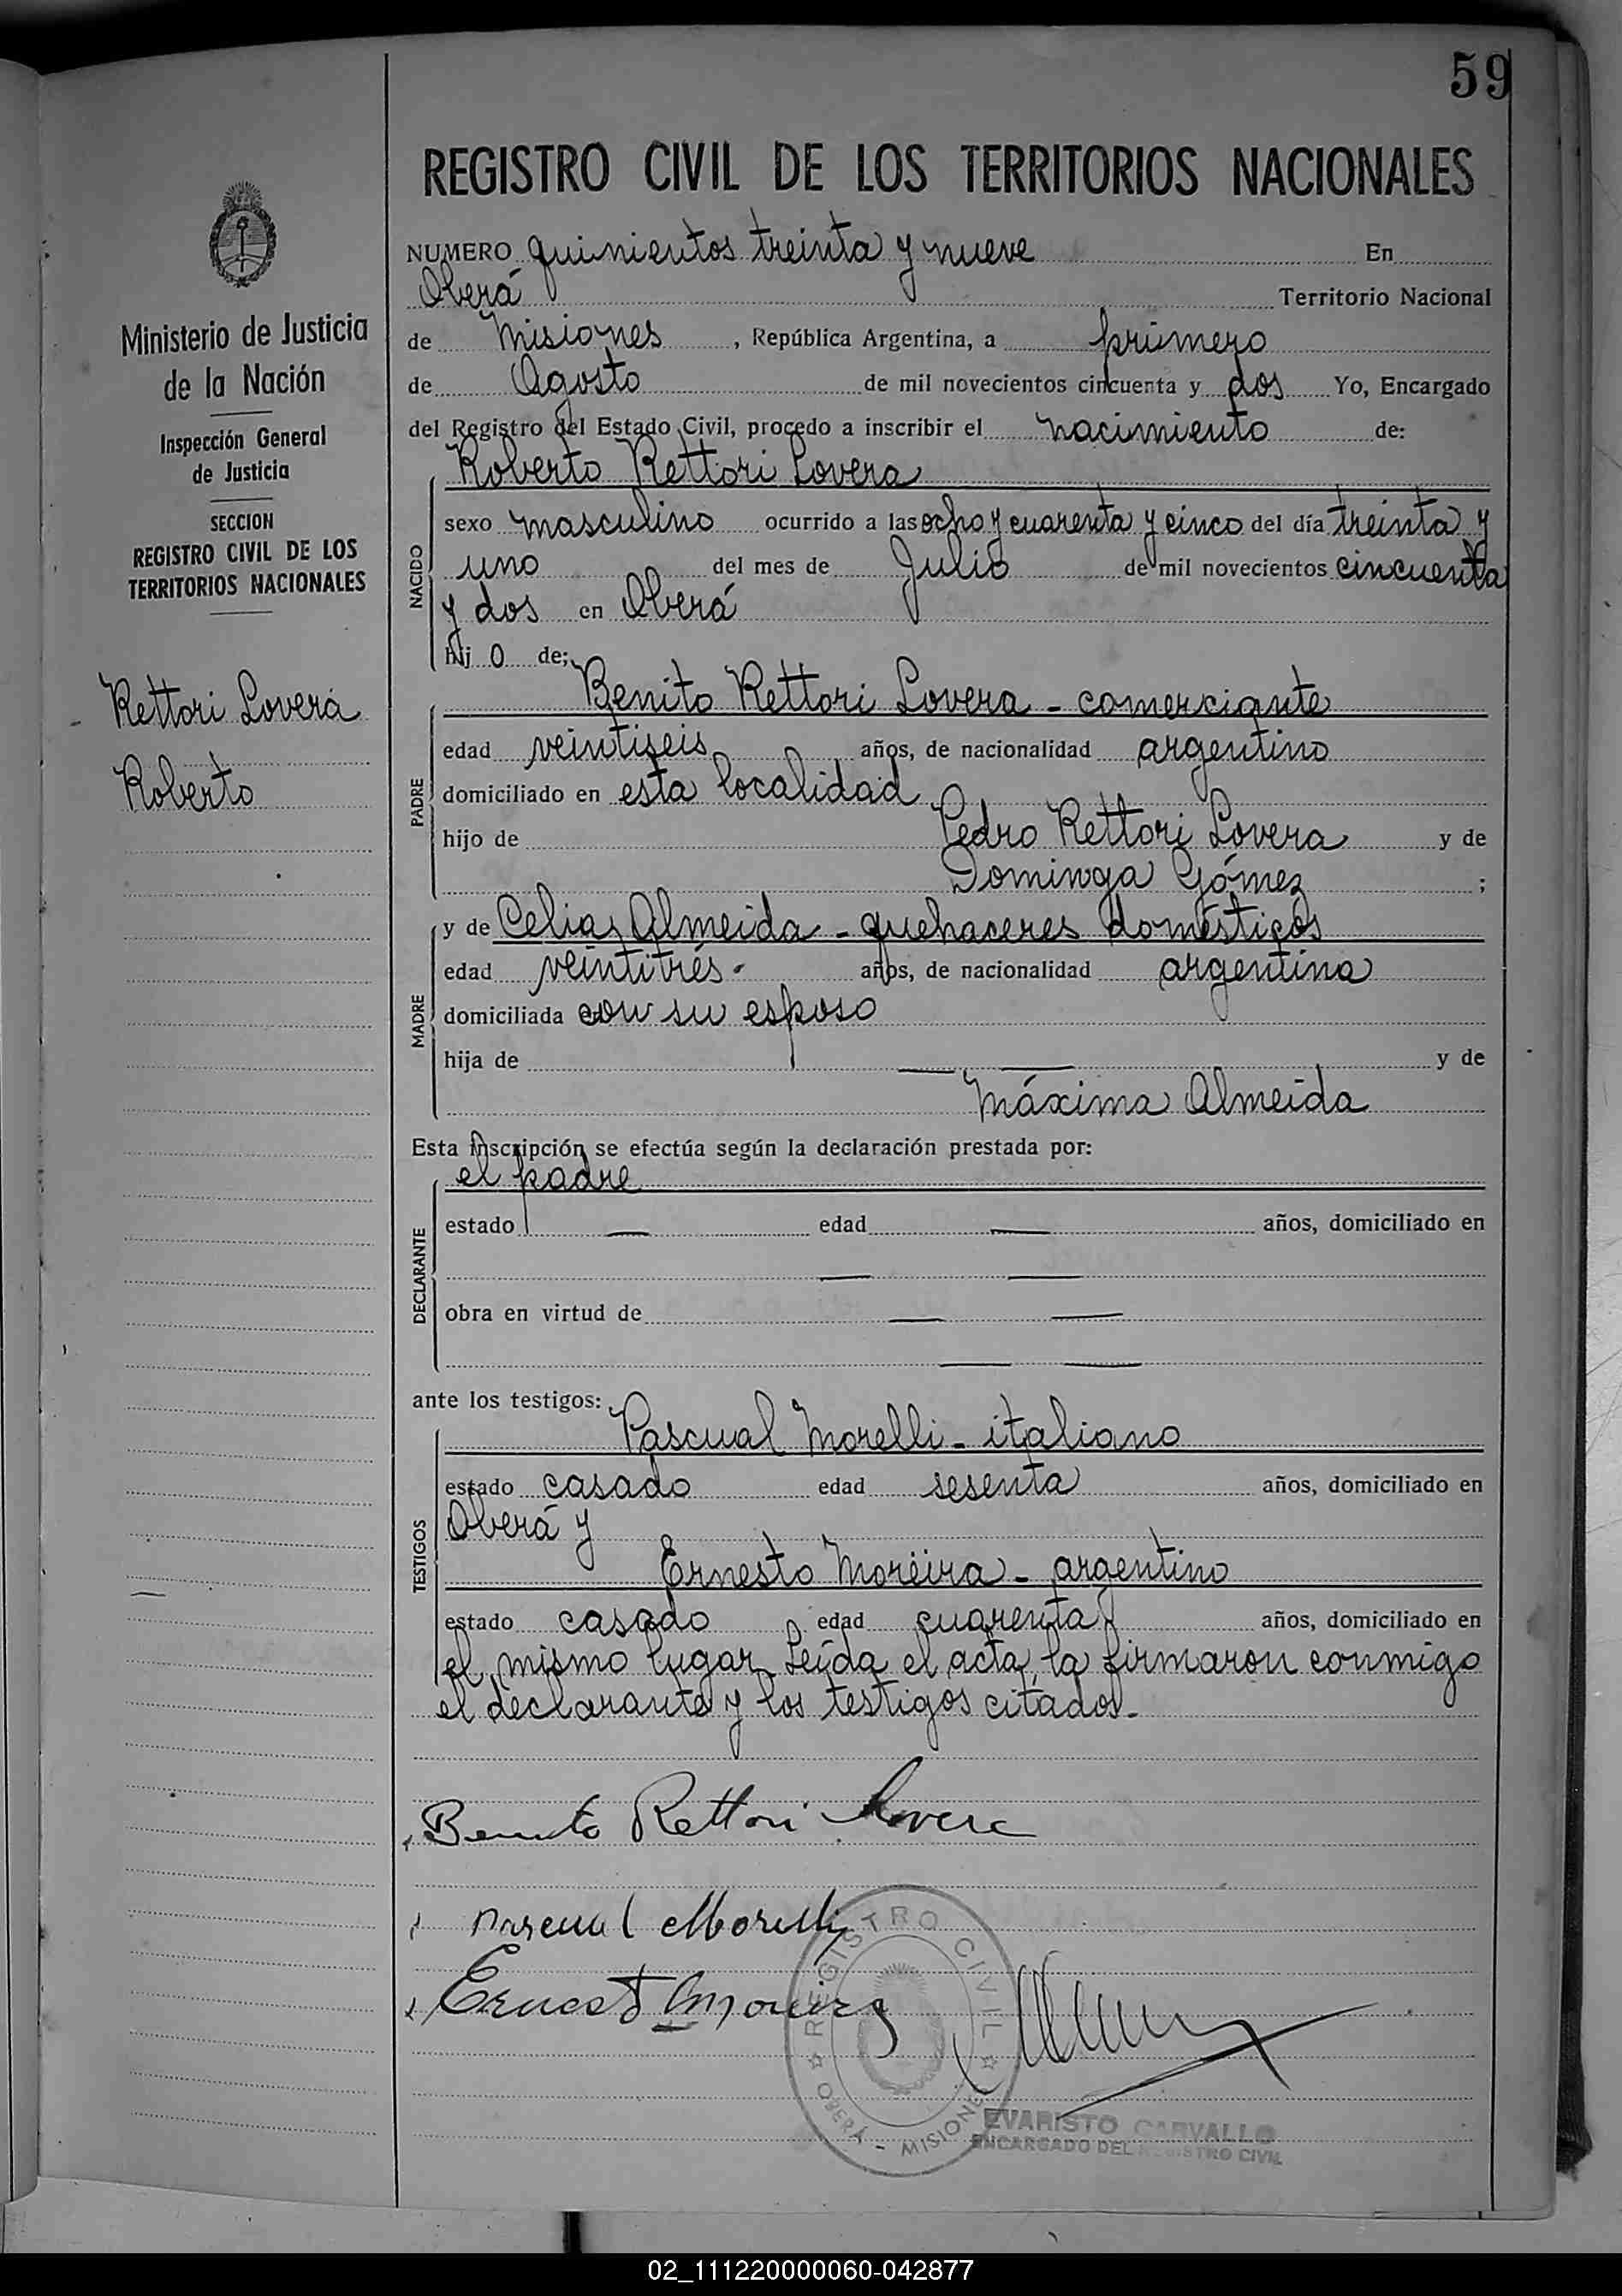 59
REGISTRO CIVIL DE LOS TERRITORIOS NACIONALES
Ministerio de Justicia
de la Nación
Inspección General
de Justicia
SECCION
REGISTRO CIVIL DE LOS
TERRITORIOS NACIONALES
Rettori Lovera
Roberto
NUMERO quinientos treinta y nueve En
Oberá Territorio Nacional
de Misiones, República Argentina, a primero
de Agosto de mil novecientos cincuenta y dos Yo, Encargado
del Registro del Estado Civil, procedo a inscribir el nacimiento de:
Roberto Rettori Lovera
NACIDO
sexo masculino ocurrido a las ocho y cuarenta y cinco del día treinta y
uno del mes de Julio de mil novecientos cincuenta
y dos en Oberá
hijo de:
Benito Rettori Lovera - comerciante
PADRE
edad veintiseis años, de nacionalidad argentino
domiciliado en esta localidad
hijo de Pedro Rettori Lovera y de
Dominga Gómez ;
y de Celia Almeida - quehaceres domésticos
MADRE
edad veintitrés. años, de nacionalidad argentina
domiciliada con su esposo
hija de — — y de
Máxima Almeida
Esta inscripción se efectúa según la declaración prestada por:
el padre
DECLARANTE
estado — edad — años, domiciliado en
— —
obra en virtud de — —
— —
ante los testigos:
Pascual Morelli - italiano
TESTIGOS
estado casado edad sesenta años, domiciliado en
Oberá y
Ernesto Moreira - argentino
estado casado edad cuarenta años, domiciliado en
el mismo lugar. Leída el acta, la firmaron conmigo
el declarante y los testigos citados.-
Benito Rettori Lovera
Pascual Morelli
Ernesto Moreira
REGISTRO CIVIL
OBERÁ - MISIONES
EVARISTO CARVALLO
ENCARGADO DEL REGISTRO CIVIL
02_111220000060-042877